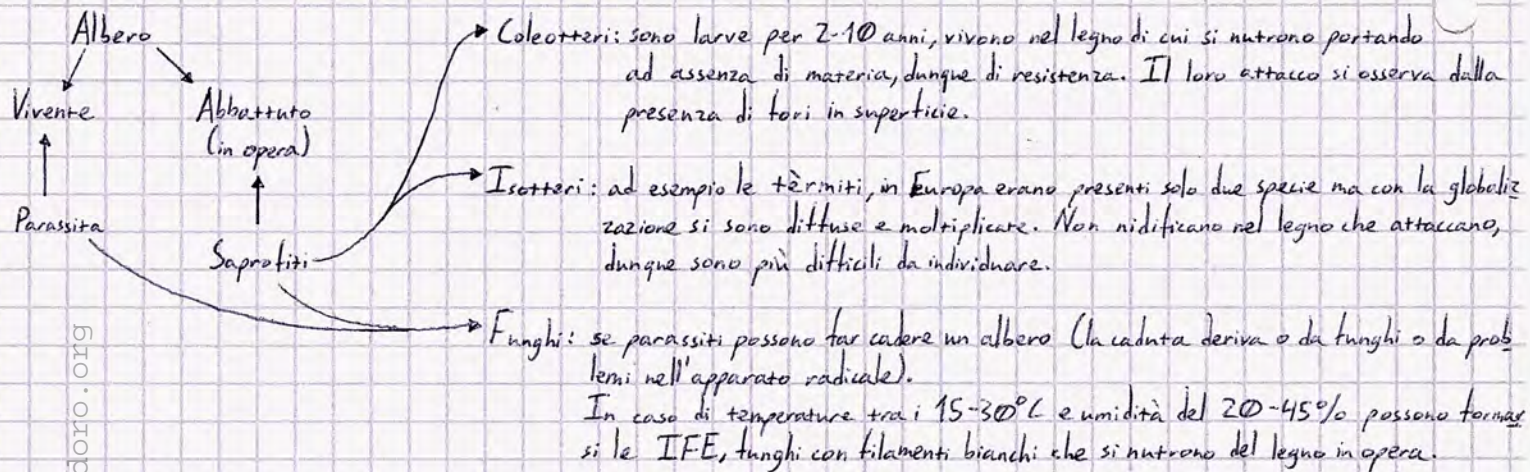 Albero
Vivente
Abbattuto
(in opera)
Parassita
Saprofiti
Coleotteri: sono larve per 2-10 anni, vivono nel legno di cui si nutrono portando
ad assenza di materia, dunque di resistenza. Il loro attacco si osserva dalla
presenza di fori in superficie.
Isotteri: ad esempio le tèrmiti, in Europa erano presenti solo due specie ma con la globaliz
zazione si sono diffuse e moltiplicate. Non nidificano nel legno che attaccano,
dunque sono più difficili da individuare.
Funghi: se parassiti possono far cadere un albero (la caduta deriva o da funghi o da prob
lemi nell'apparato radicale).
In caso di temperature tra i 15-30°C e umidità del 20-45% possono formar
si le IFE, funghi con filamenti bianchi che si nutrono del legno in opera.
doro.org